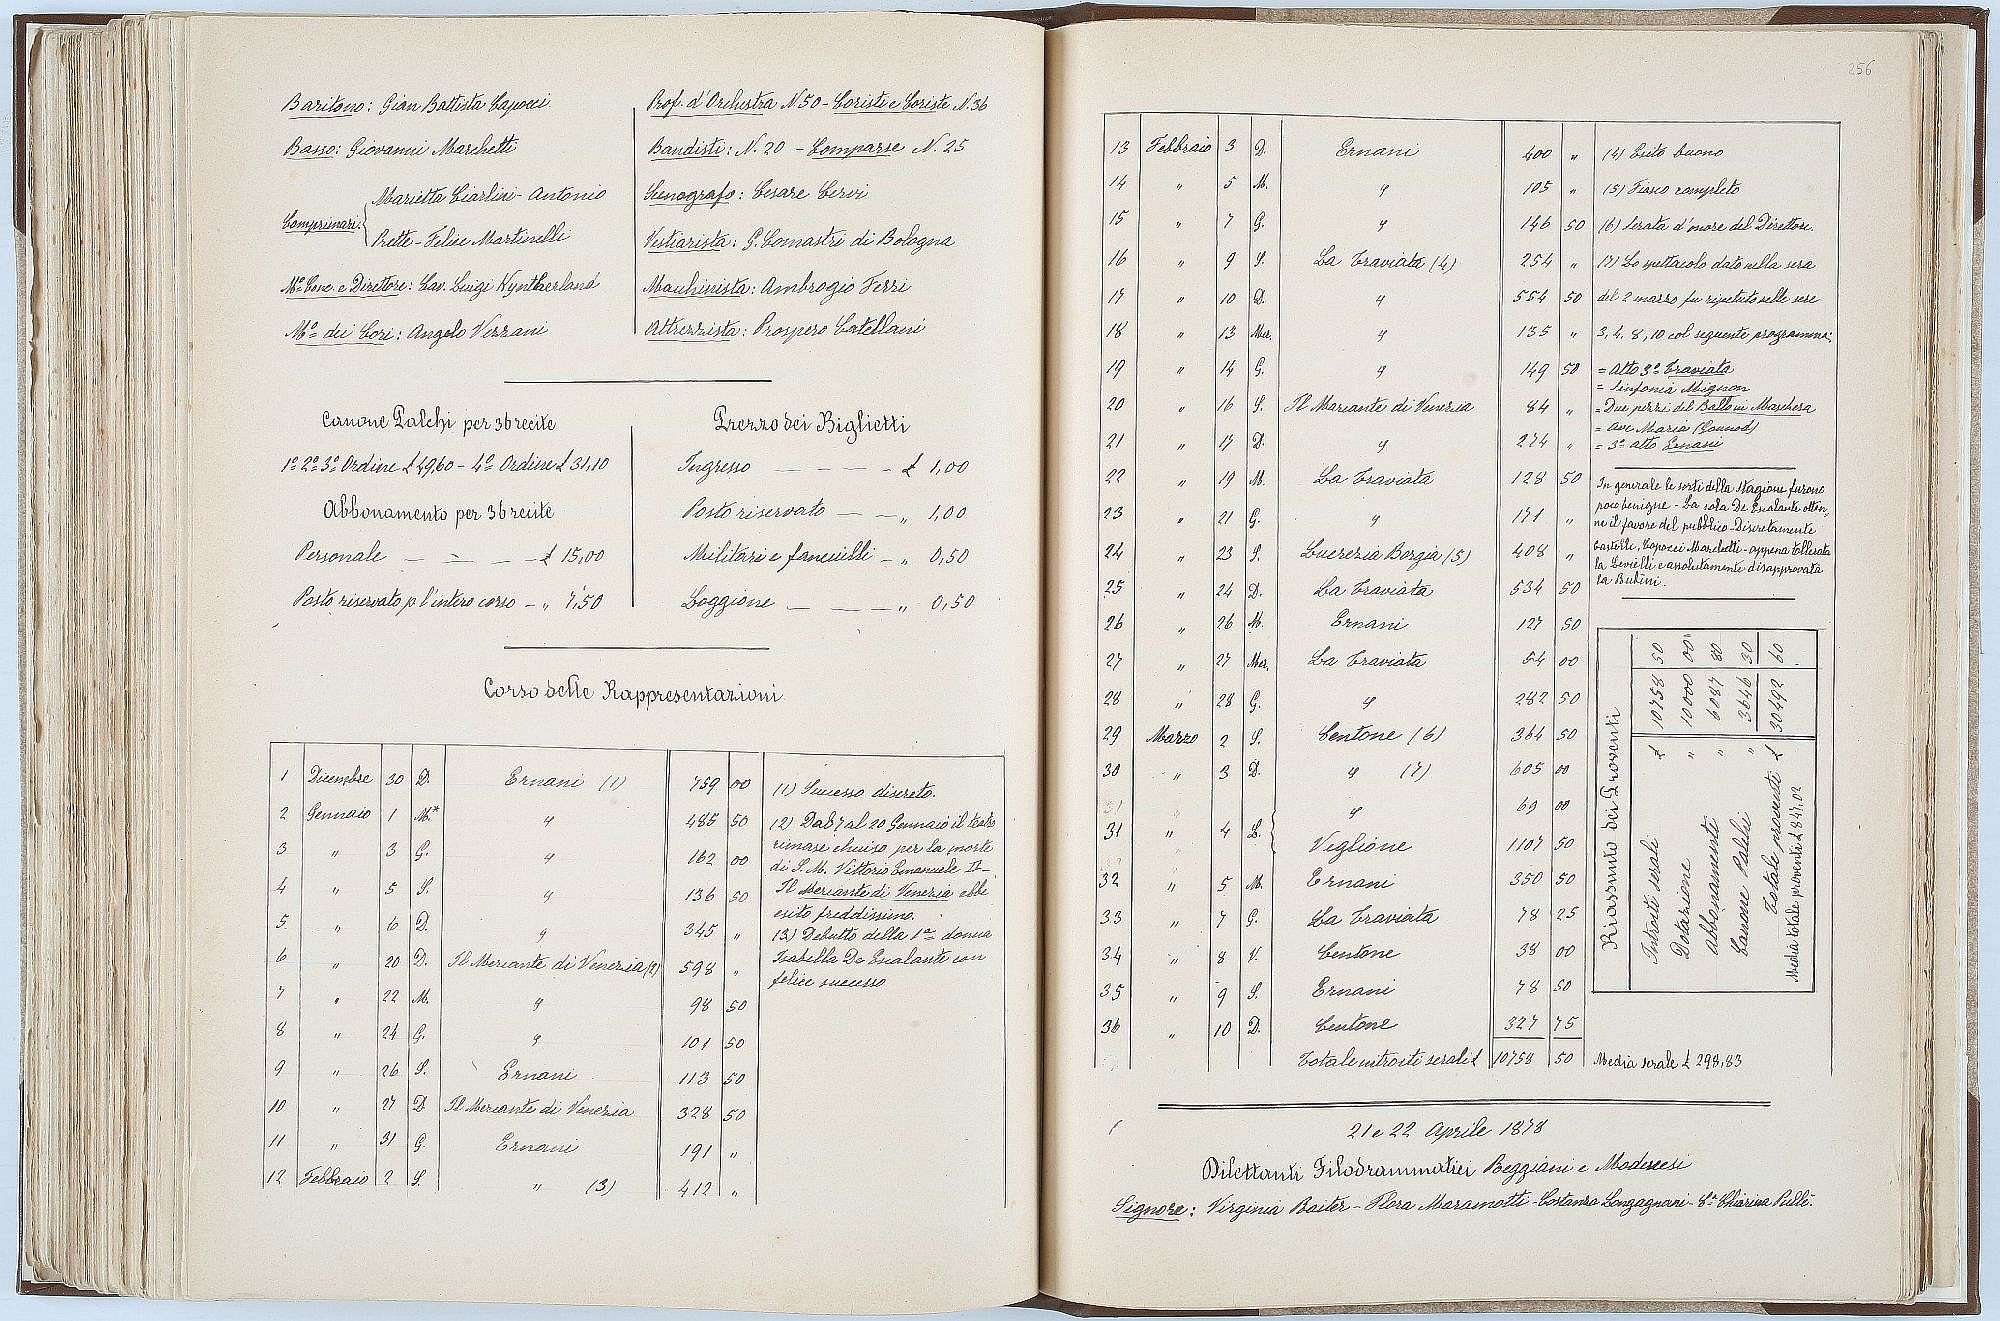 Baritono: Gian Battista Capocci
Basso: Giovanni Marchetti
Comprimari: Marietta Ciarlini - Antonio
Prette - Felice Martinelli
M.o Conc. e Direttore: Cav. Luigi Kyntherland
M.o dei Cori: Angelo Vezzani
Prof. d'Orchestra N 50 - Coristi e Coriste N. 36
Bandisti: N. 20 - Comparse N. 25
Scenografo: Cesare Cervi
Vestiarista: P. Comastri di Bologna
Macchinista: Ambrogio Ferri
Attrezzista: Prospero Catellani
Canone Palchi per 36 recite
1o 2o 3o Ordine £ 49,60 - 4o Ordine £ 31,10
Abbonamento per 36 recite
Personale — — — £ 15,00
Posto riservato p l'intero corso - " 7,50
Prezzo dei Biglietti
Ingresso — — — - £ 1,00
Posto riservato — — " 1,00
Militari e fanciulli - " 0,50
Loggione — — — " 0,50
Corso delle Rappresentazioni
1 Dicembre 30 D. Ernani (1) 759 00
2 Gennaio 1 M.* " 485 50
3 " 3 G. " 162 00
4 " 5 S. " 136 50
5 " 6 D. " 345 "
6 " 20 D. Il Mercante di Venezia (2) 598 "
7 " 22 M. " 98 50
8 " 24 G. " 101 50
9 " 26 S. Ernani 113 50
10 " 27 D Il Mercante di Venezia 328 50
11 " 31 G. Ernani 191 "
12 Febbraio 2 S. " (3) 412 "
(1) Successo discreto.
(2) Dal 7 al 20 Gennaio il teatro
rimase chiuso per la morte
di S. M. Vittorio Emanuele II -
Il Mercante di Venezia ebbe
esito freddissimo.
(3) Debutto della 1a donna
Isabella De Escalante con
felice successo
256
13 Febbraio 3 D. Ernani 400 "
14 " 5 M. " 105 "
15 " 7 G. " 146 50
16 " 9 S. La Traviata (4) 254 "
17 " 10 D. " 554 50
18 " 13 Mer. " 135 "
19 " 14 G. " 149 50
20 " 16 S. Il Mercante di Venezia 84 "
21 " 17 D. " 274 "
22 " 19 M. La Traviata 128 50
23 " 21 G. " 171 "
24 " 23 S. Lucrezia Borgia (5) 408 "
25 " 24 D. La Traviata 534 50
26 " 26 M. Ernani 127 50
27 " 27 Mer. La Traviata 54 00
28 " 28 G. " 282 50
29 Marzo 2 S. Centone (6) 364 50
30 " 3 D. " (7) 605 00
" 69 00
31 " 4 L. Veglione 1107 50
32 " 5 M. Ernani 350 50
33 " 7 G. La Traviata 78 25
34 " 8 V. Centone 38 00
35 " 9 S. Ernani 78 50
36 " 10 D. Centone 327 75
Totale introiti serali £ 10758 50 Media serale £ 298,83
(4) Esito buono
(5) Fiasco completo
(6) Serata d'onore del Direttore.
(7) Lo spettacolo dato nella sera
del 2 marzo fu ripetuto nelle sere
3, 4, 8, 10 col seguente programma;
= Atto 3o Traviata
= Sinfonia Mignon
= Due pezzi del Ballo in Maschera
= Ave Maria (Gounod)
= 3o atto Ernani
In generale le sorti della Stagione furono
poco benigne - La sola De Escalante otten-
ne il favore del pubblico - Discretamente
Castelli, Capocci Marchetti - appena tollerata
la Levielli e assolutamente disapprovata
la Bulini.
Riassunto dei Proventi
Introiti serali £ 10758 50
Dotazione " 10000 00
Abbonamenti " 6087 80
Canone Palchi " 3646 30
Totale proventi £ 30492 60
Media totale proventi £ 847,02
21 e 22 Aprile 1878
Dilettanti Filodrammatici Reggiani e Modenesi
Signore: Virginia Baiter - Flora Maramotti - Costanza Longagnani - Ca Chiarina Pulle.